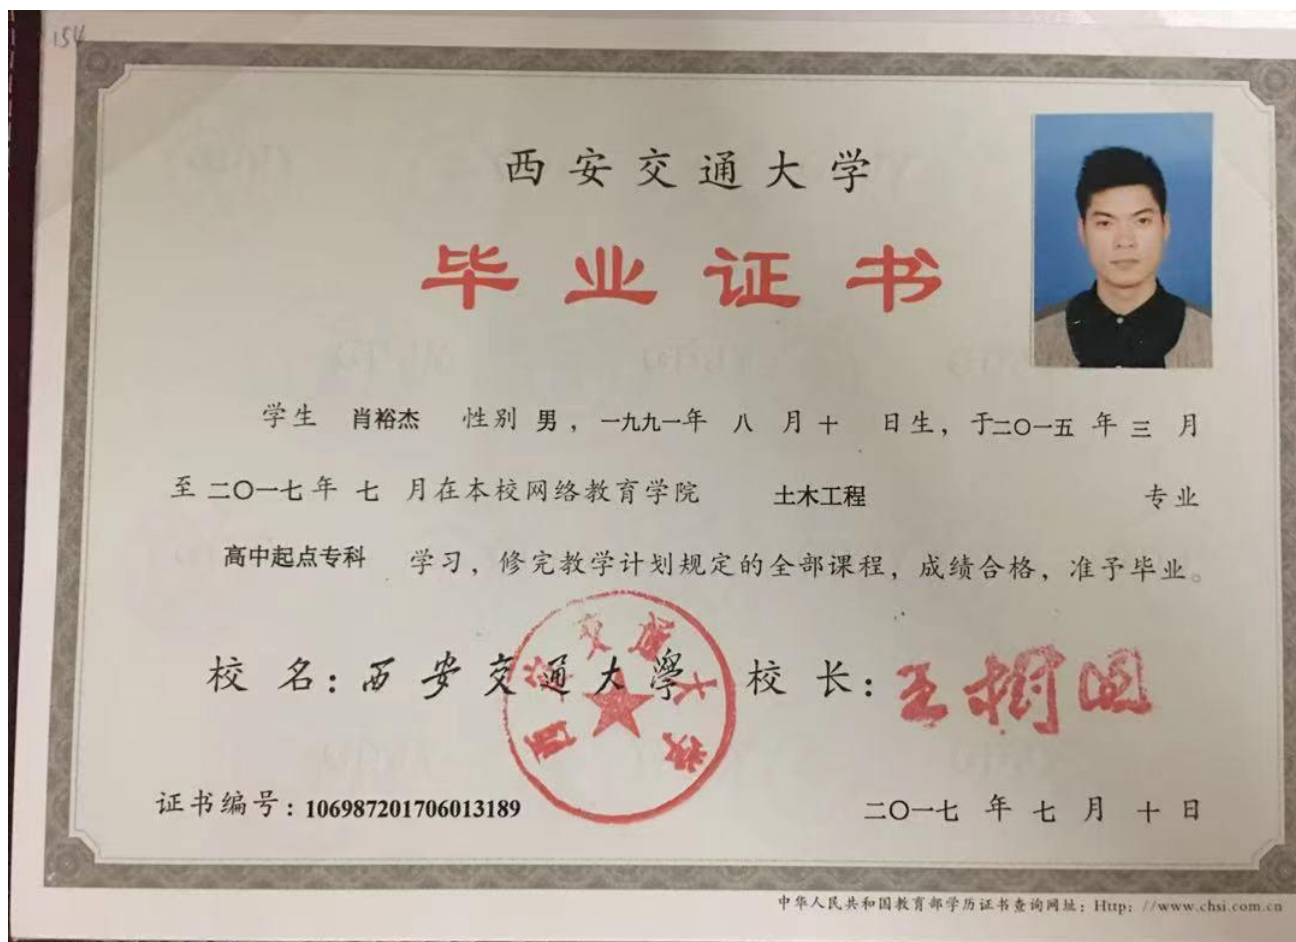 154
西安交通大学
毕业证书
学生 肖裕杰 性别 男，一九九一年 八 月 十 日生，于二〇一五 年 三 月
至 二〇一七 年 七 月在本校网络教育学院 土木工程 专业
高中起点专科 学习，修完教学计划规定的全部课程，成绩合格，准予毕业。
校 名：西安交通大學 校 长：王树国
西安交通大学
证书编号：106987201706013189 二〇一七 年 七 月 十 日
中华人民共和国教育部学历证书查询网址：Http：//www.chsi.com.cn